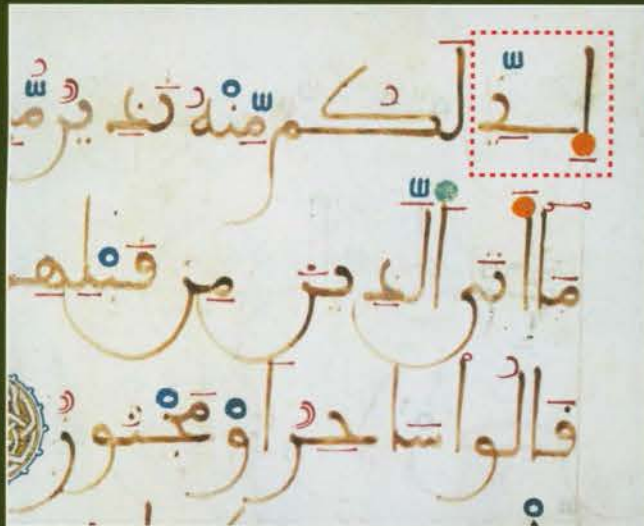 إِنِّي لَكُم مِّنْهُ نَذِيرٌ مُّ
مَا أَتَى الَّذِينَ مِن قَبْلِهِ
قَالُوا سَاحِرٌ أَوْ مَجْنُونٌ